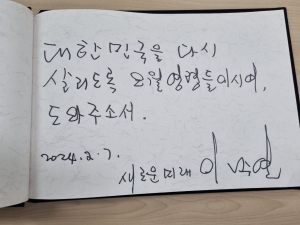 대한민국을 다시
살리도록 오월영령들이시여,
도와주소서.
2024. 2. 7.
새로운미래 이낙연